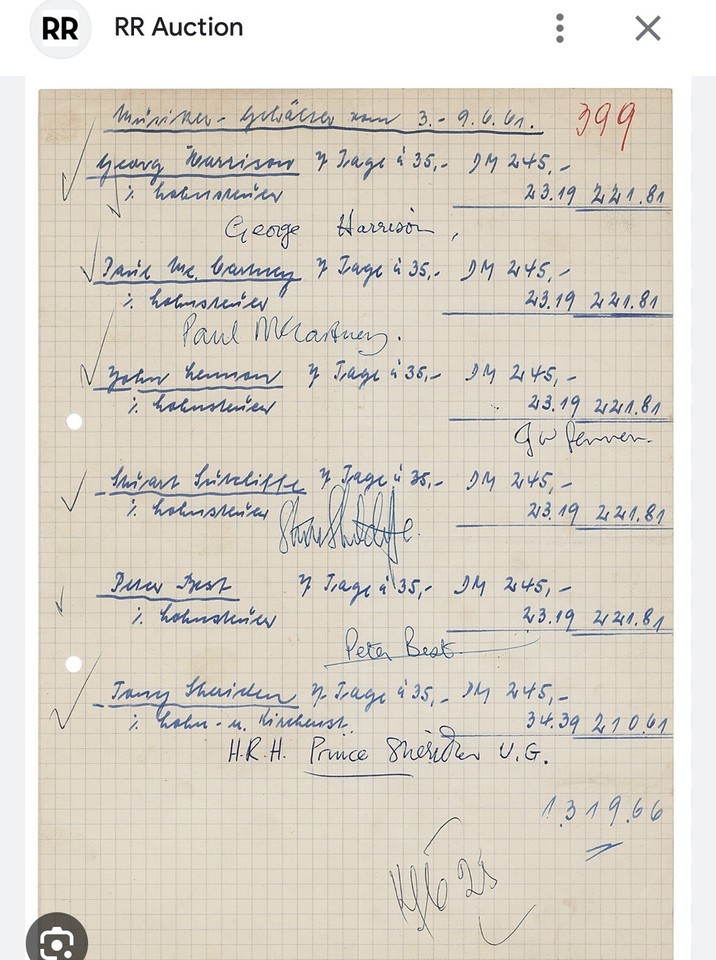 RR RR Auction
Musiker-Gehälter vom 3.-9.6.61. 399
Georg Harrison 7 Tage à 35,- DM 245,-
% Lohnsteuer 23.19 221.81
George Harrison,
Paul Mc. Cartney 7 Tage à 35,- DM 245,-
% Lohnsteuer 23.19 221.81
Paul McCartney.
John Lennon 7 Tage à 35,- DM 245,-
% Lohnsteuer 23.19 221.81
J W Lennon.
Stuart Sutcliffe 7 Tage à 35,- DM 245,-
% Lohnsteuer 23.19 221.81
Stuart Sutcliffe.
Peter Best 7 Tage à 35,- DM 245,-
% Lohnsteuer 23.19 221.81
Peter Best
Tony Sheriden 7 Tage à 35,- DM 245,-
% Lohn- u. Kirchenst. 34.39 210.61
H.R.H. Prince Sheridan V.G.
1.319.66